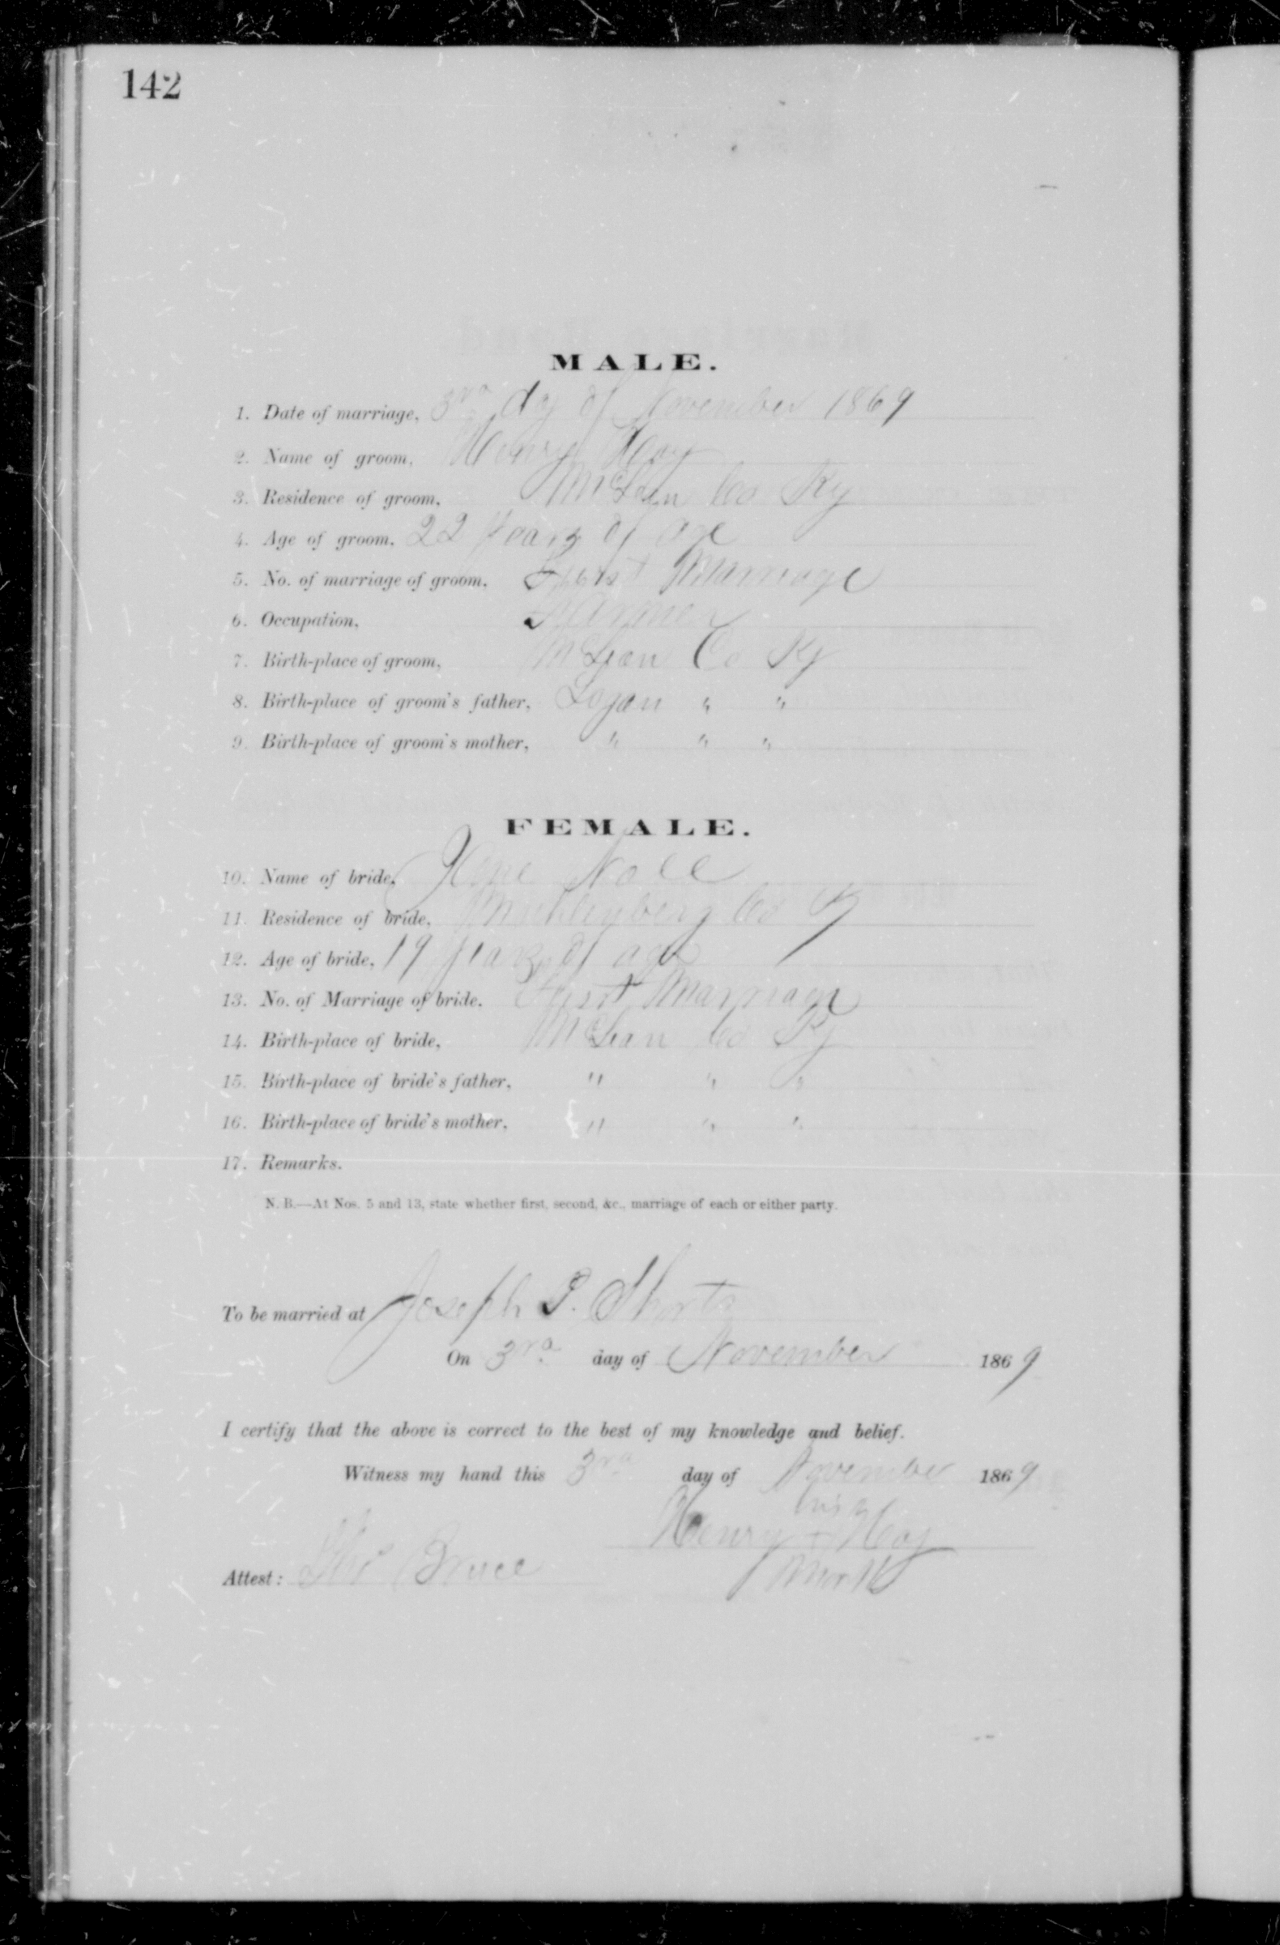 142
MALE.
1. Date of marriage, 3rd dy of November 1869
2. Name of groom, Henry Hay
3. Residence of groom, McLean Co Ky
4. Age of groom, 22 years of age
5. No. of marriage of groom, First Marriage
6. Occupation, Farmer
7. Birth-place of groom, McLean Co Ky
8. Birth-place of groom's father, Logan " "
9. Birth-place of groom's mother, " " "
FEMALE.
10. Name of bride, Jane Noll
11. Residence of bride, Muhlenberg Co Ky
12. Age of bride, 19 years of age
13. No. of Marriage of bride, First Marriage
14. Birth-place of bride, McLean Co Ky
15. Birth-place of bride's father, " " "
16. Birth-place of bride's mother, " " "
17. Remarks.
N. B.—At Nos. 5 and 13, state whether first, second, &c., marriage of each or either party.
To be married at Joseph P. Short
On 3rd day of November 1869
I certify that the above is correct to the best of my knowledge and belief.
Witness my hand this 3rd day of November 1869
his
Henry + Hay
Mark
Attest: Thos Bruce